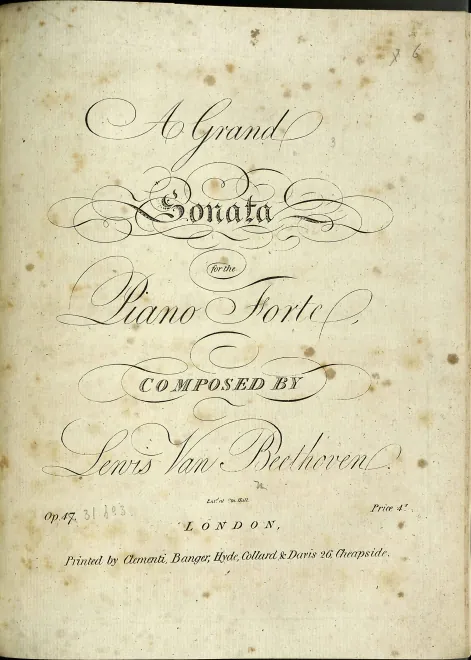 6
A Grand
Sonata
for the
Piano Forte,
COMPOSED BY
Lewis Van Beethoven.
Ent.d at Sta. Hall.
Op. 47. 31
Price 4s.
LONDON,
Printed by Clementi, Banger, Hyde, Collard & Davis 26, Cheapside.